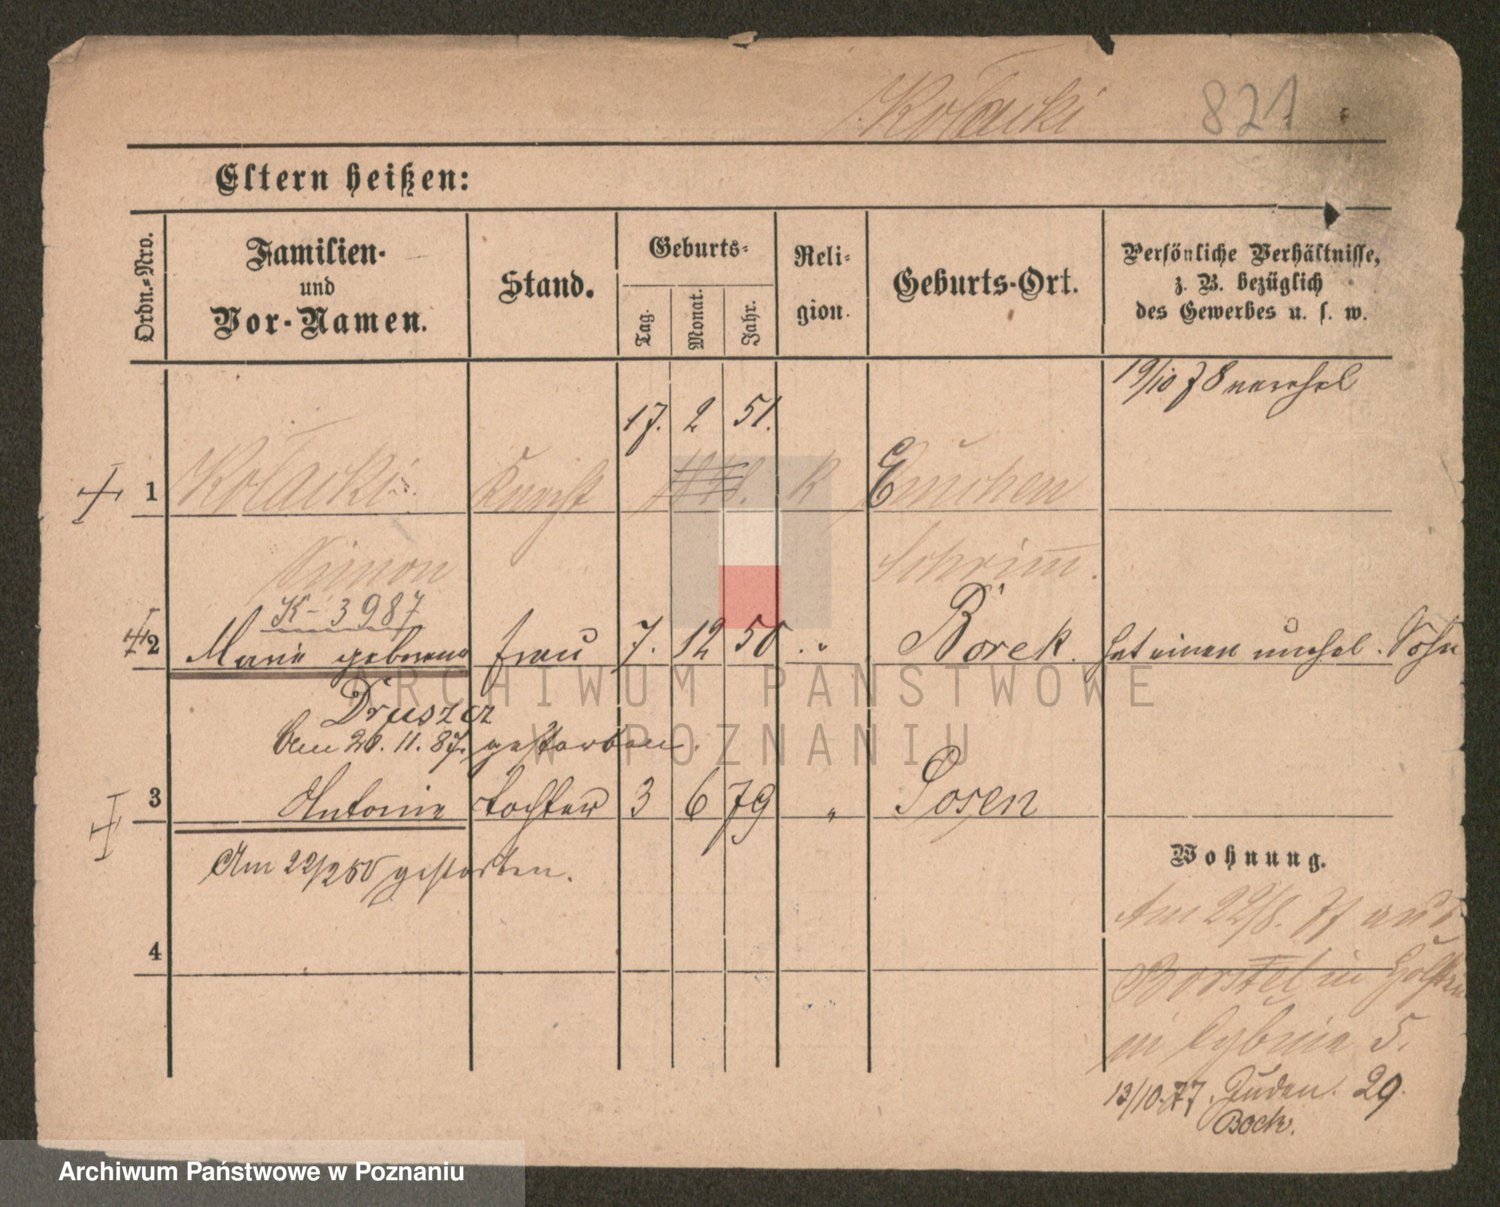 Kołacki 821
Eltern heißen:
Ordn.-Nro.
Familien-
und
Vor-Namen.
Stand.
Geburts-
Tag.
Monat.
Jahr.
Reli-
gion.
Geburts-Ort.
Persönliche Verhältnisse,
z. B. bezüglich
des Gewerbes u. s. w.
19/10 78 verehel
17. 2 51.
1 Kołacki K
Simon Schrimm.
K-3987
2 Marie geborene frau 7. 12 50 " Borek. hat einen unehel. Sohn
Druszcz
Am 20.11.87. gestorben.
3 Antonie tochter 3 6 79 " Posen
Am 22/2 80 gestorben.
Wohnung.
4
Am 22/8. 77 aus
Borstel in
in 5.
13/10.77. Juden. 29.
Bock.
ARCHIWUM PAŃSTWOWE
W POZNANIU
Archiwum Państwowe w Poznaniu